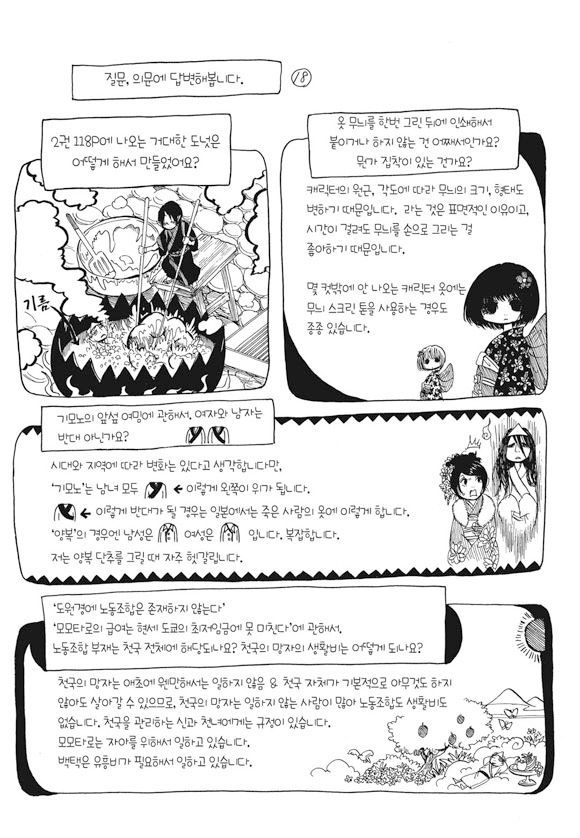 질문, 의문에 답변해봅니다.
18
2권 118P에 나오는 거대한 도넛은
어떻게 해서 만들었어요?
기름
옷 무늬를 한번 그린 뒤에 인쇄해서
붙이거나 하지 않는 건 어째서인가요?
뭔가 집착이 있는 건가요?
캐릭터의 원근, 각도에 따라 무늬의 크기, 형태도
변하기 때문입니다. 라는 것은 표면적인 이유이고,
시간이 걸려도 무늬를 손으로 그리는 걸
좋아하기 때문입니다.
몇 컷밖에 안 나오는 캐릭터 옷에는
무늬 스크린 톤을 사용하는 경우도
종종 있습니다.
기모노의 앞섶 여밈에 관해서. 여자와 남자는
반대 아닌가요?
시대와 지역에 따라 변화는 있다고 생각합니다만,
'기모노'는 남녀 모두 ← 이렇게 왼쪽이 위가 됩니다.
← 이렇게 반대가 될 경우는 일본에서는 죽은 사람의 옷에 이렇게 합니다.
'양복'의 경우엔 남성은 여성은 입니다. 복잡합니다.
저는 양복 단추를 그릴 때 자주 헷갈립니다.
'도원경에 노동조합은 존재하지 않는다'
'모모타로의 급여는 현세 도쿄의 최저임금에 못 미친다'에 관해서.
노동조합 부재는 천국 전체에 해당되나요? 천국의 망자의 생활비는 어떻게 되나요?
천국의 망자는 애초에 웬만해서는 일하지 않음 & 천국 자체가 기본적으로 아무것도 하지
않아도 살아갈 수 있으므로, 천국의 망자는 일하지 않는 사람이 많아 노동조합도 생활비도
없습니다. 천국을 관리하는 신과 천녀에게는 규정이 있습니다.
모모타로는 자아를 위해서 일하고 있습니다.
백택은 유흥비가 필요해서 일하고 있습니다.